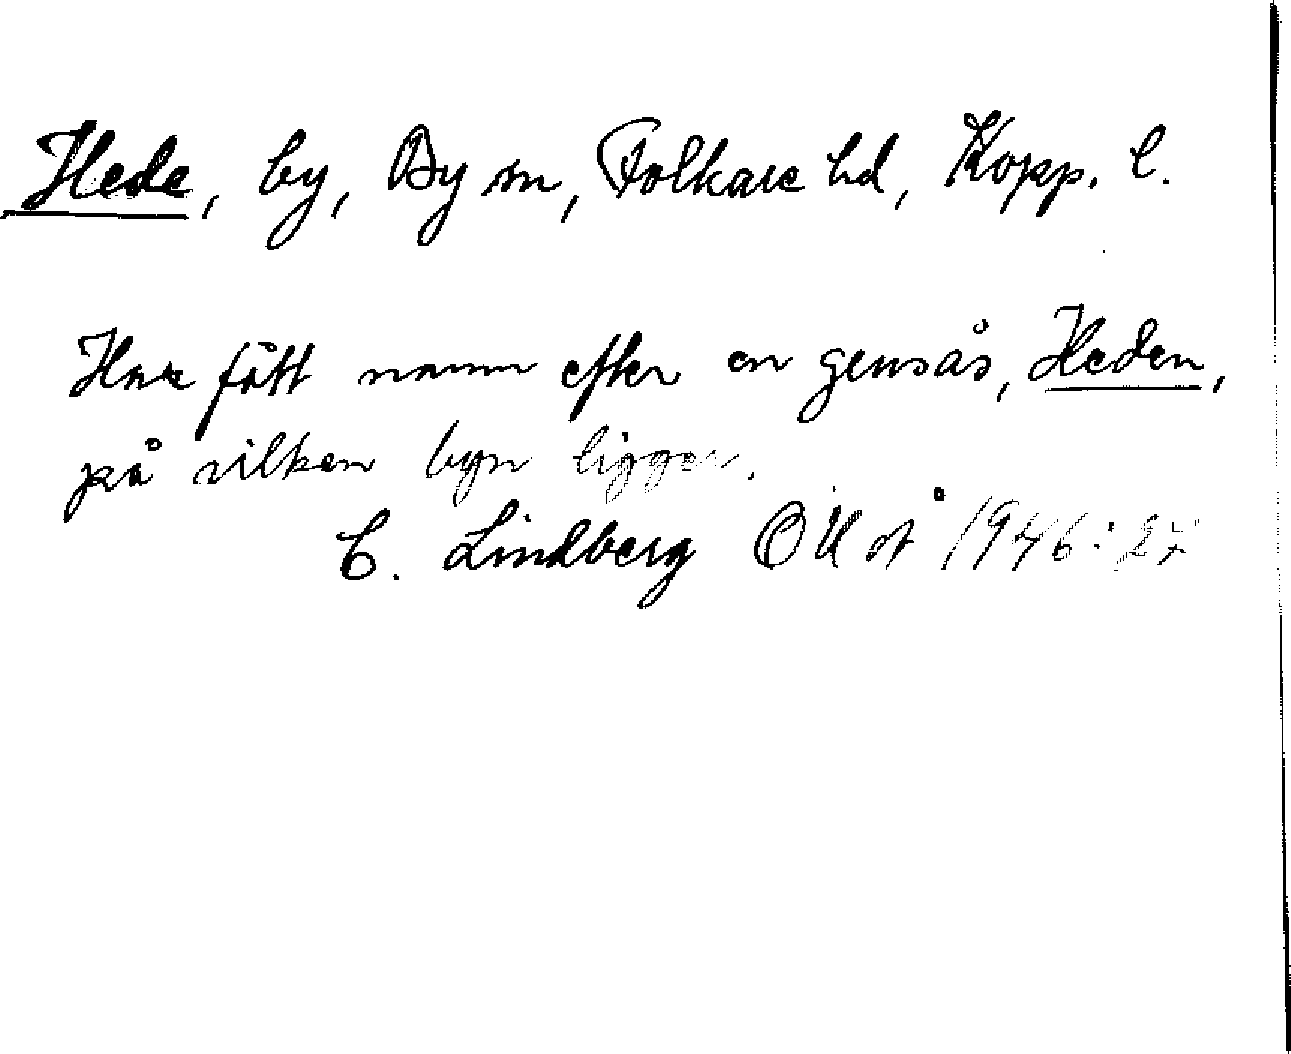 Hede, by, By sn, Folkare hd, Kopp. l.
Har fått namn efter en grusås, Heden,
på vilken byn ligger.
C. Lindberg 1946: 27